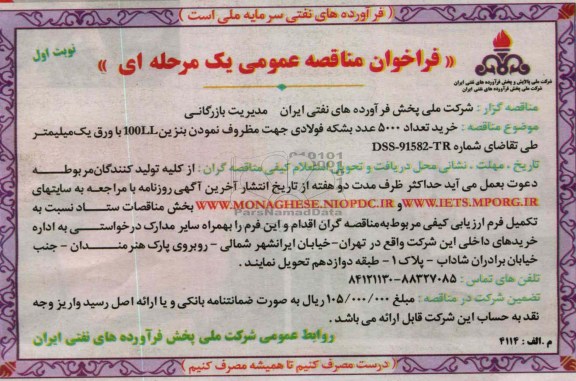 ( فرآورده های نفتی سرمایه ملی است )
نوبت اول
« فراخوان مناقصه عمومی یک مرحله ای »
شرکت ملی پالایش و پخش فرآورده های نفتی ایران
شرکت ملی پخش فرآورده های نفتی ایران
مناقصه گزار : شرکت ملی پخش فرآورده های نفتی ایران مدیریت بازرگانی
موضوع مناقصه : خرید تعداد ۵۰۰۰ عدد بشکه فولادی جهت مظروف نمودن بنزین 100LL با ورق یک میلیمتر
طی تقاضای شماره DSS-91582-TR
تاریخ ، مهلت ، نشانی محل دریافت و تحویل استعلام کیفی مناقصه گران : از کلیه تولید کنندگان مربوطه
دعوت بعمل می آید حداکثر ظرف مدت دو هفته از تاریخ انتشار آخرین آگهی روزنامه با مراجعه به سایتهای
WWW.IETS.MPORG.IR و WWW.MONAGHESE.NIOPDC.IR بخش مناقصات ستاد نسبت به
تکمیل فرم ارزیابی کیفی مربوط به مناقصه گران اقدام و این فرم را بهمراه سایر مدارک درخواستی به اداره
خریدهای داخلی این شرکت واقع در تهران-خیابان ایرانشهر شمالی - روبروی پارک هنرمندان - جنب
خیابان برادران شاداب - پلاک ۱ - طبقه دوازدهم تحویل نمایند .
تلفن های تماس : ۸۸۳۲۷۰۸۵-۸۴۱۲۱۱۳۰
تضمین شرکت در مناقصه : مبلغ ۱۰۵/۰۰۰/۰۰۰ ریال به صورت ضمانتنامه بانکی و یا ارائه اصل رسید واریز وجه
نقد به حساب این شرکت قابل ارائه می باشد .
م .الف : ۴۱۱۴
روابط عمومی شرکت ملی پخش فرآورده های نفتی ایران
( درست مصرف کنیم تا همیشه مصرف کنیم )
ParsNamadData